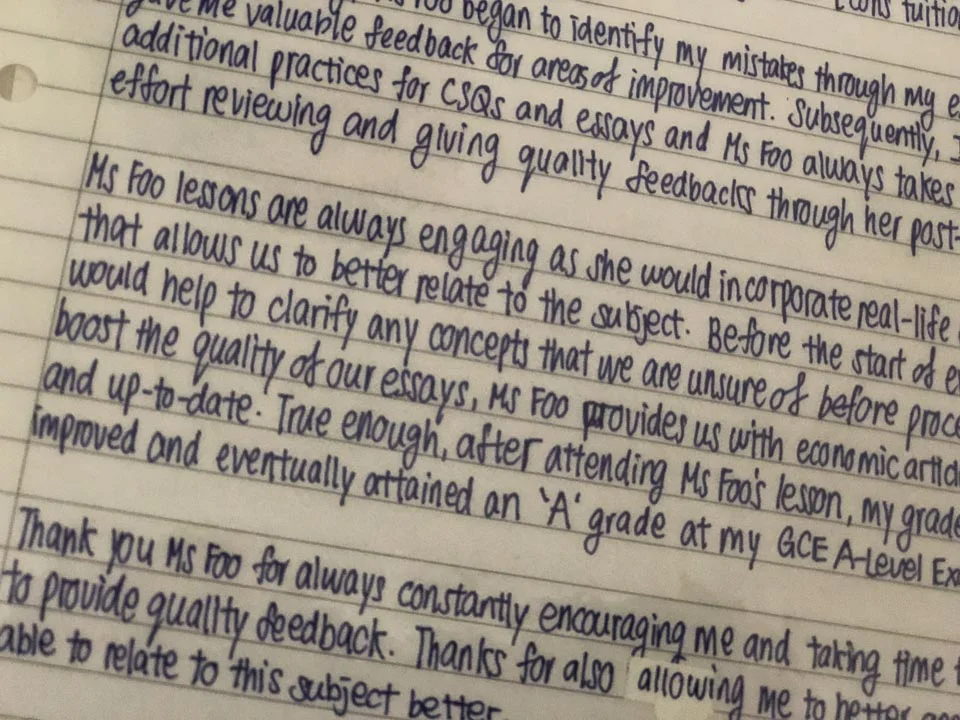 Econs tuition
gave me valuable feedback for areas of improvement. Subsequently, I
Foo began to identify my mistakes through my
additional practices for CSQs and essays and Ms Foo always takes
effort reviewing and giving quality feedbacks through her post-
Ms Foo lessons are always engaging as she would incorporate real-life
that allows us to better relate to the subject. Before the start of
would help to clarify any concepts that we are unsure of before
boost the quality of our essays, Ms Foo provides us with economic
and up-to-date. True enough, after attending Ms Foo's lesson, my
improved and eventually attained an 'A' grade at my GCE A-Level
Thank you Ms Foo for always constantly encouraging me and taking time
to provide quality feedback. Thanks for also allowing me to better
able to relate to this subject better.